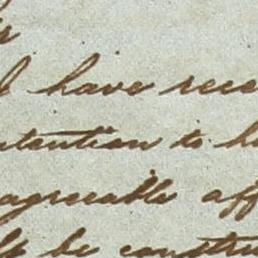 I have rece
ntention to h
agreeable aff
ld be constru